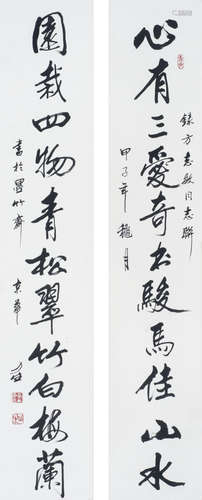 心有三愛奇書駿馬佳山水
錄方志敏同志聯
甲子年龍月
園栽四物青松翠竹白梅蘭
書於墨竹齋
京華